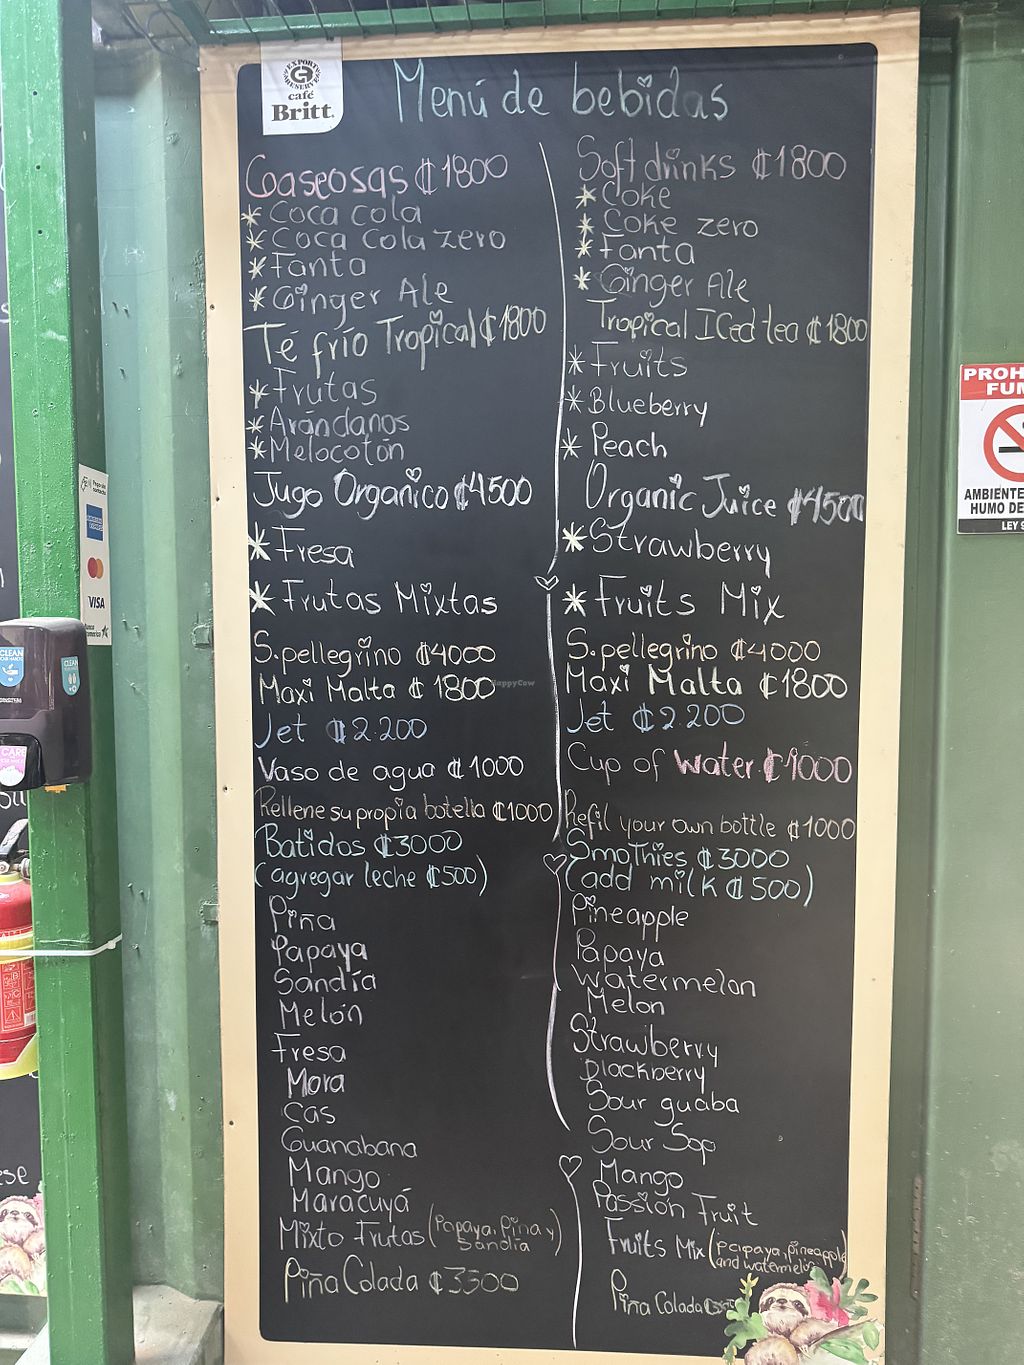 EXPORT
RESERVE
café
Britt.
Menú de bebidas
Gaseosas ₡1800
* Coca cola
* Coca Cola zero
* Fanta
* Ginger Ale
Té frío Tropical ₡1800
* Frutas
* Arándanos
* Melocotón
Jugo Organico ₡4500
* Fresa
* Frutas Mixtas
S.pellegrino ₡4000
Maxi Malta ₡1800
Jet ₡2.200
Vaso de agua ₡1000
Rellene su propia botella ₡1000
Batidos ₡3000
(agregar leche ₡500)
Piña
Papaya
Sandía
Melón
Fresa
Mora
Cas
Guanabana
Mango
Maracuyá
Mixto Frutas (Papaya, Piña y
Sandía)
Piña Colada ₡3500
Soft drinks ₡1800
* Coke
* Coke zero
* Fanta
* Ginger Ale
Tropical ICed tea ₡1800
* Fruits
* Blueberry
* Peach
Organic Juice ₡4500
* Strawberry
* Fruits Mix
S.pellegrino ₡4000
Maxi Malta ₡1800
Jet ₡2.200
Cup of water ₡1000
Refil your own bottle ₡1000
Smothies ₡3000
(add milk ₡500)
Pineapple
Papaya
Watermelon
Melon
Strawberry
Blackberry
Sour guaba
Sour Sop
Mango
Passion Fruit
Fruits Mix (papaya, pineapple
and watermelon)
Piña Colada
HappyCow
PROH
FUM
AMBIENTE
HUMO DE
LEY 9
AMERICAN EXPRESS
VISA
CLEAN
CLEAN
CARE
ese